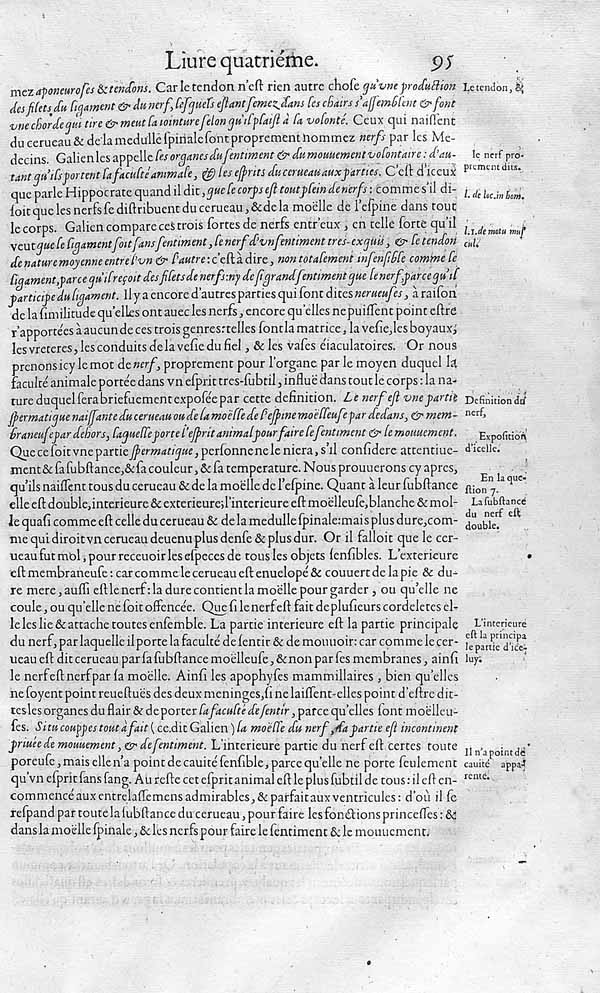 Liure quatriéme. 95
mez aponeuroses & tendons. Car le tendon n'eſt rien autre choſe qu'vne production
des filets du ligament & du nerf, leſquels eſtant ſemez dans les chairs s'aſſemblent & font
vne chorde qui tire & meut la iointure ſelon qu'il plaiſt à la volonté. Ceux qui naiſſent
du cerueau & de la medulle ſpinale ſont proprement nommez nerfs par les Me-
decins. Galien les appelle les organes du ſentiment & du mouuement volontaire: d'au-
tant qu'ils portent la faculté animale, & les eſprits du cerueau aux parties. C'eſt d'iceux
que parle Hippocrate quand il dit, que le corps eſt tout plein de nerfs: comme s'il di-
ſoit que les nerfs ſe diſtribuent du cerueau, & de la moëlle de l'eſpine dans tout
le corps. Galien compare ces trois ſortes de nerfs entr'eux, en telle ſorte qu'il
veut que le ligament ſoit ſans ſentiment, le nerf d'vn ſentiment tres-exquis, & le tendon
de nature moyenne entre l'vn & l'autre: c'eſt à dire, non totalement inſenſible comme le
ligament, parce qu'il reçoit des filets de nerfs: ny de ſi grand ſentiment que le nerf, parce qu'il
participe du ligament. Il y a encore d'autres parties qui ſont dites nerueuſes, à raiſon
de la ſimilitude qu'elles ont auec les nerfs, encore qu'elles ne puiſſent point eſtre
r'apportées à aucun de ces trois genres: telles ſont la matrice, la veſie, les boyaux,
les vreteres, les conduits de la veſie du fiel, & les vaſes éiaculatoires. Or nous
prenons icy le mot de nerf, proprement pour l'organe par le moyen duquel la
faculté animale portée dans vn eſprit tres-ſubtil, influë dans tout le corps: la na-
ture duquel ſera briefuement expoſée par cette definition. Le nerf eſt vne partie
ſpermatique naiſſante du cerueau ou de la moëlle de l'eſpine moëlleuſe par dedans, & mem-
braneuſe par dehors, laquelle porte l'eſprit animal pour faire le ſentiment & le mouuement.
Que ce ſoit vne partie ſpermatique, perſonne ne le niera, s'il conſidere attentiue-
ment & ſa ſubſtance, & ſa couleur, & ſa temperature. Nous prouuerons cy apres,
qu'ils naiſſent tous du cerueau & de la moëlle de l'eſpine. Quant à leur ſubſtance
elle eſt double, interieure & exterieure; l'interieure eſt moëlleuſe, blanche & mol-
le quaſi comme eſt celle du cerueau & de la medulle ſpinale: mais plus dure, com-
me qui diroit vn cerueau deuenu plus denſe & plus dur. Or il falloit que le cer-
ueau fut mol, pour receuoir les eſpeces de tous les objets ſenſibles. L'exterieure
eſt membraneuſe: car comme le cerueau eſt enuelopé & couuert de la pie & du-
re mere, auſſi eſt le nerf: la dure contient la moëlle pour garder, ou qu'elle ne
coule, ou qu'elle ne ſoit offencée. Que ſi le nerf eſt fait de pluſieurs cordeletes el-
le les lie & attache toutes enſemble. La partie interieure eſt la partie principale
du nerf, par laquelle il porte la faculté de ſentir & de mouuoir: car comme le cer-
ueau eſt dit cerueau par ſa ſubſtance moëlleuſe, & non par ſes membranes, ainſi
le nerf eſt nerf par ſa moëlle. Ainſi les apophyſes mammillaires, bien qu'elles
ne ſoyent point reueſtuës des deux meninges, ſi ne laiſſent-elles point d'eſtre dit-
tes les organes du flair & de porter la faculté de ſentir, parce qu'elles ſont moëlleu-
ſes. Si tu couppes tout à fait (ce dit Galien) la moëlle du nerf, ſa partie eſt incontinent
priuée de mouuement, & de ſentiment. L'interieure partie du nerf eſt certes toute
poreuſe, mais elle n'a point de cauité ſenſible, parce qu'elle ne porte ſeulement
qu'vn eſprit ſans ſang. Au reſte cet eſprit animal eſt le plus ſubtil de tous: il eſt en-
commencé aux entrelaſſemens admirables, & parfait aux ventricules: d'où il ſe
reſpand par toute la ſubſtance du cerueau, pour faire les fonctions princeſſes: &
dans la moëlle ſpinale, & les nerfs pour faire le ſentiment & le mouuement.
Le tendon, &
le nerf pro-
prement dits.
l. de loc. in hom.
l. 1. de motu muſ
cul.
Definition du
nerf,
Expoſition
d'icelle.
En la que-
ſtion 7.
La ſubſtance
du nerf eſt
double.
L'interieure
eſt la principa
le partie d'ice-
luy.
Il n'a point de
cauité appa-
rente.